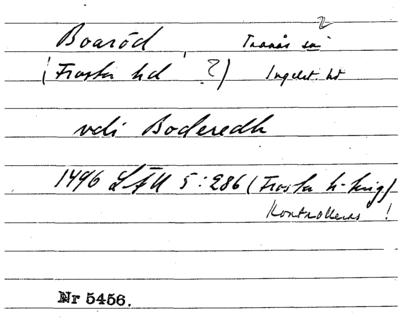 Boaröd, Tranås sn ?
(Frosta hd ?) Ingelst. hd
vdi Boderedh
1496 LÄU 5:286 (Frosta h-king)
Kontrolleras !
Nr 5456.